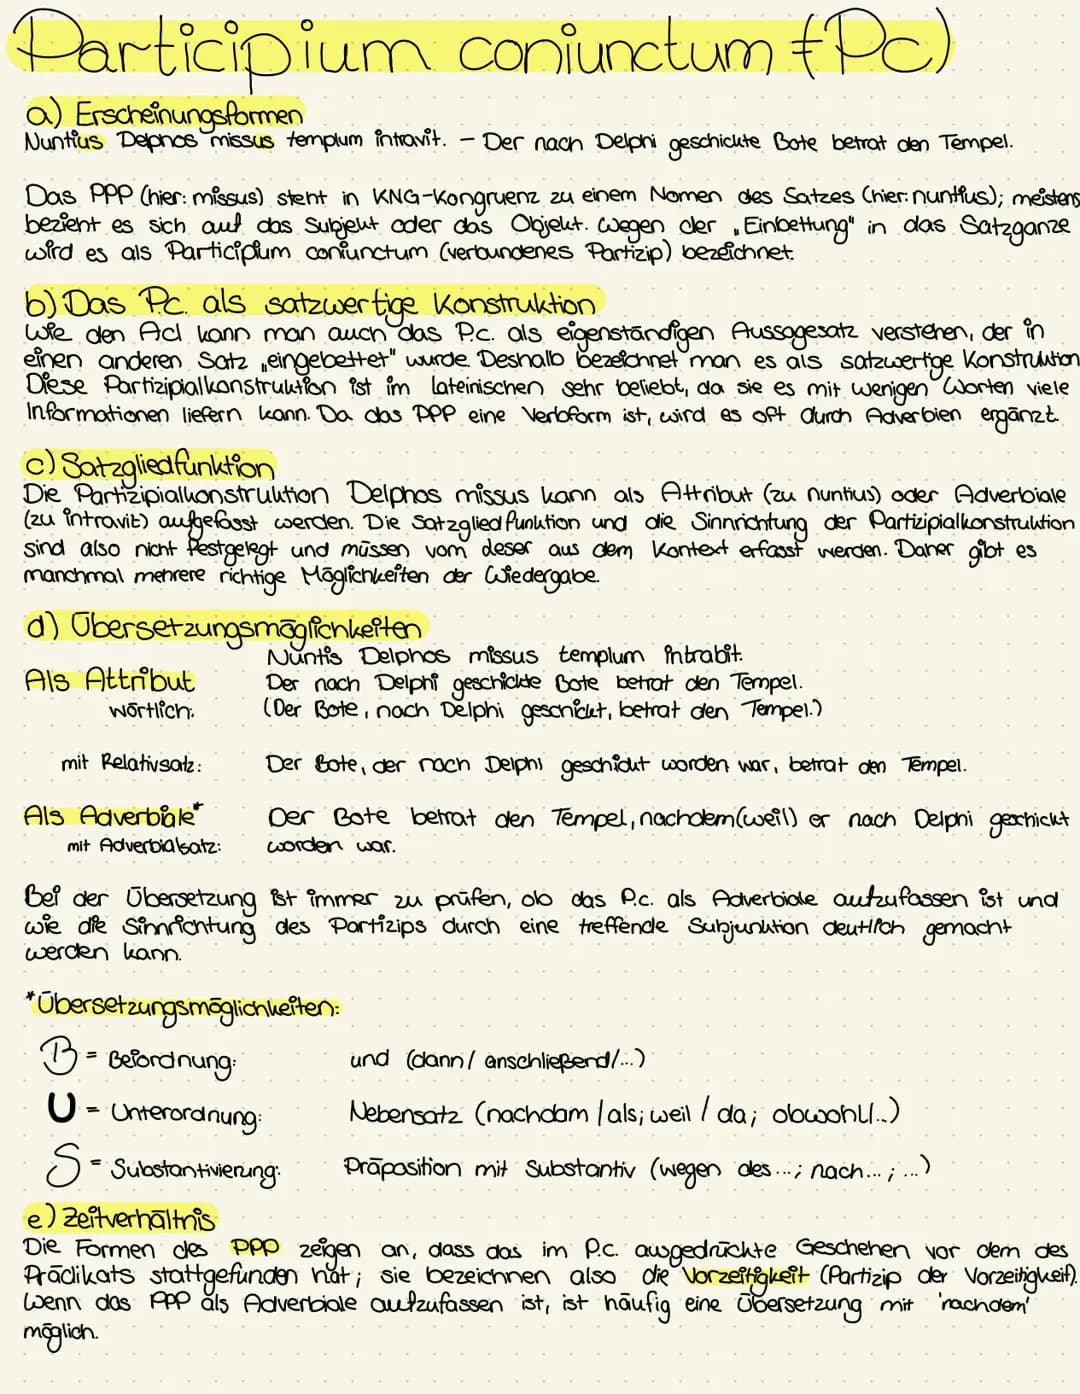 Participium coniunctum (Pc)
a) Erscheinungsformen
Nuntius Delphos missus templum intravit. – Der nach Delphi geschickte Bote betrat den Tempel.
Das PPP (hier: missus) steht in KNG-Kongruenz zu einem Nomen des Satzes (hier: nuntius); meistens
bezieht es sich auf das Subjekt oder das Objekt. Wegen der „Einbettung" in das Satzganze
wird es als Participium coniunctum (verbundenes Partizip) bezeichnet.
b) Das P.c. als satzwertige Konstruktion
Wie den AcI kann man auch das P.c. als eigenständigen Aussagesatz verstehen, der in
einen anderen Satz „eingebettet" wurde. Deshalb bezeichnet man es als satzwertige Konstruktion
Diese Partizipialkonstruktion ist im lateinischen sehr beliebt, da sie es mit wenigen Worten viele
Informationen liefern kann. Da das PPP eine Verbform ist, wird es oft durch Adverbien ergänzt.
c) Satzgliedfunktion
Die Partizipialkonstruktion Delphos missus kann als Attribut (zu nuntius) oder Adverbiale
(zu intravit) aufgefasst werden. Die Satzgliedfunktion und die Sinnrichtung der Partizipialkonstruktion
sind also nicht festgelegt und müssen vom deser aus dem Kontext erfasst werden. Daher gibt es
manchmal mehrere richtige Möglichkeiten der Wiedergabe.
d) Übersetzungsmöglichkeiten
Nuntis Delphos missus templum intrabit.
Als Attribut Der nach Delphi geschickte Bote betrat den Tempel.
wörtlich: (Der Bote, nach Delphi geschickt, betrat den Tempel.)
mit Relativsatz: Der Bote, der nach Delphi geschickt worden war, betrat den Tempel.
Als Adverbiale* Der Bote betrat den Tempel, nachdem (weil) er nach Delphi geschickt
mit Adverbialsatz: worden war.
Bei der Übersetzung ist immer zu prüfen, ob das P.c. als Adverbiale aufzufassen ist und
wie die Sinnrichtung des Partizips durch eine treffende Subjunktion deutlich gemacht
werden kann.
*Übersetzungsmöglichkeiten:
B = Beiordnung: und (dann/ anschließend/...)
U = Unterordnung: Nebensatz (nachdam / als; weil / da; obwohl/..)
S = Substantivierung: Präposition mit Substantiv (wegen des ...; nach...; ...)
e) Zeitverhältnis
Die Formen des PPP zeigen an, dass das im P.c. ausgedrückte Geschehen vor dem des
Prädikats stattgefunden hat; sie bezeichnen also die Vorzeitigkeit (Partizip der Vorzeitigkeit).
Wenn das PPP als Adverbiale aufzufassen ist, ist häufig eine Übersetzung mit 'nachdem'
möglich.